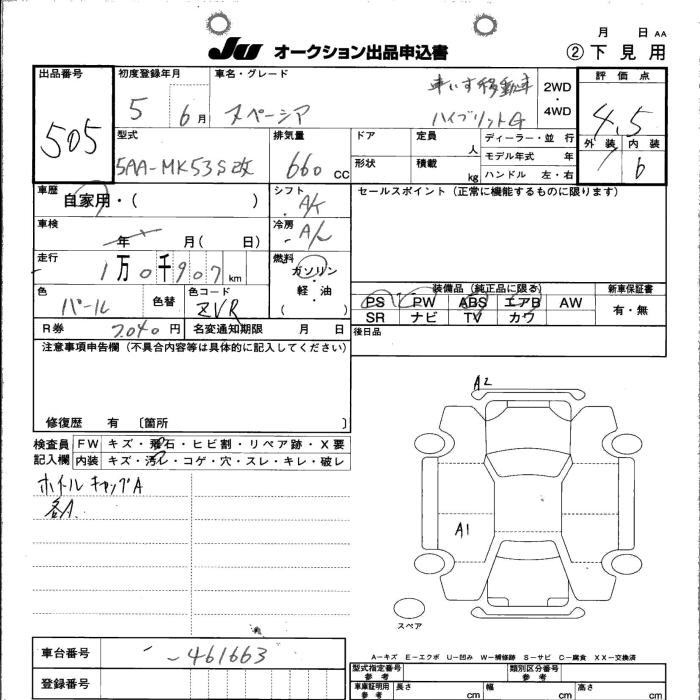 月 日 AA
JU オークション出品申込書
② 下見用
出品番号
505
初度登録年月
5 6月
車名・グレード
車いす移動車
スペーシア
ハイブリットG
2WD・4WD
評価点
4.5
外装 内装
b
型式
5AA-MK53S改
排気量
660 CC
ドア
形状
定員 人
積載 kg
ディーラー・並行
モデル年式 年
ハンドル 左・右
車歴
自家用・( )
シフト
A/t
セールスポイント（正常に機能するものに限ります）
車検
年 月( 日)
冷房
A/c
走行
1万0千907km
燃料
ガソリン・軽油
( )
色
パール
色替
色コード
ZVR
装備品（純正品に限る）
PS PW ABS エアB AW
SR ナビ TV カワ
新車保証書
有・無
R券
7040円
名変通知期限 月 日
後日品
注意事項申告欄（不具合内容等は具体的に記入してください）
修復歴 有 〔箇所 〕
検査員記入欄
FW キズ・飛石・ヒビ割・リペア跡・X要
内装 キズ・汚レ・コゲ・穴・スレ・キレ・破レ
ホイルキャップA
各A.
A2
A1
スペア
A－キズ E－エクボ U－凹み W－補修跡 S－サビ C－腐食 XX－交換済
車台番号
-461663
登録番号
型式指定番号
参考
類別区分番号
参考
車庫証明用
参考
長さ cm
幅 cm
高さ cm